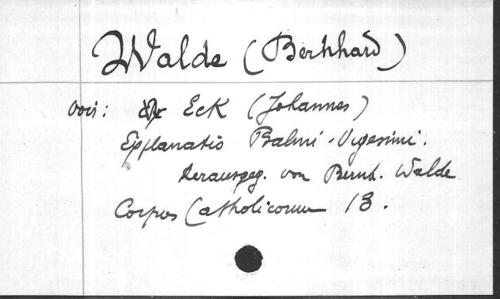 Walde (Bernhard)
voir: Eck (Johannes)
Explanatio Psalmi Vigesimi.
herausgeg. von Bernh. Walde
Corpus Catholicorum 13.